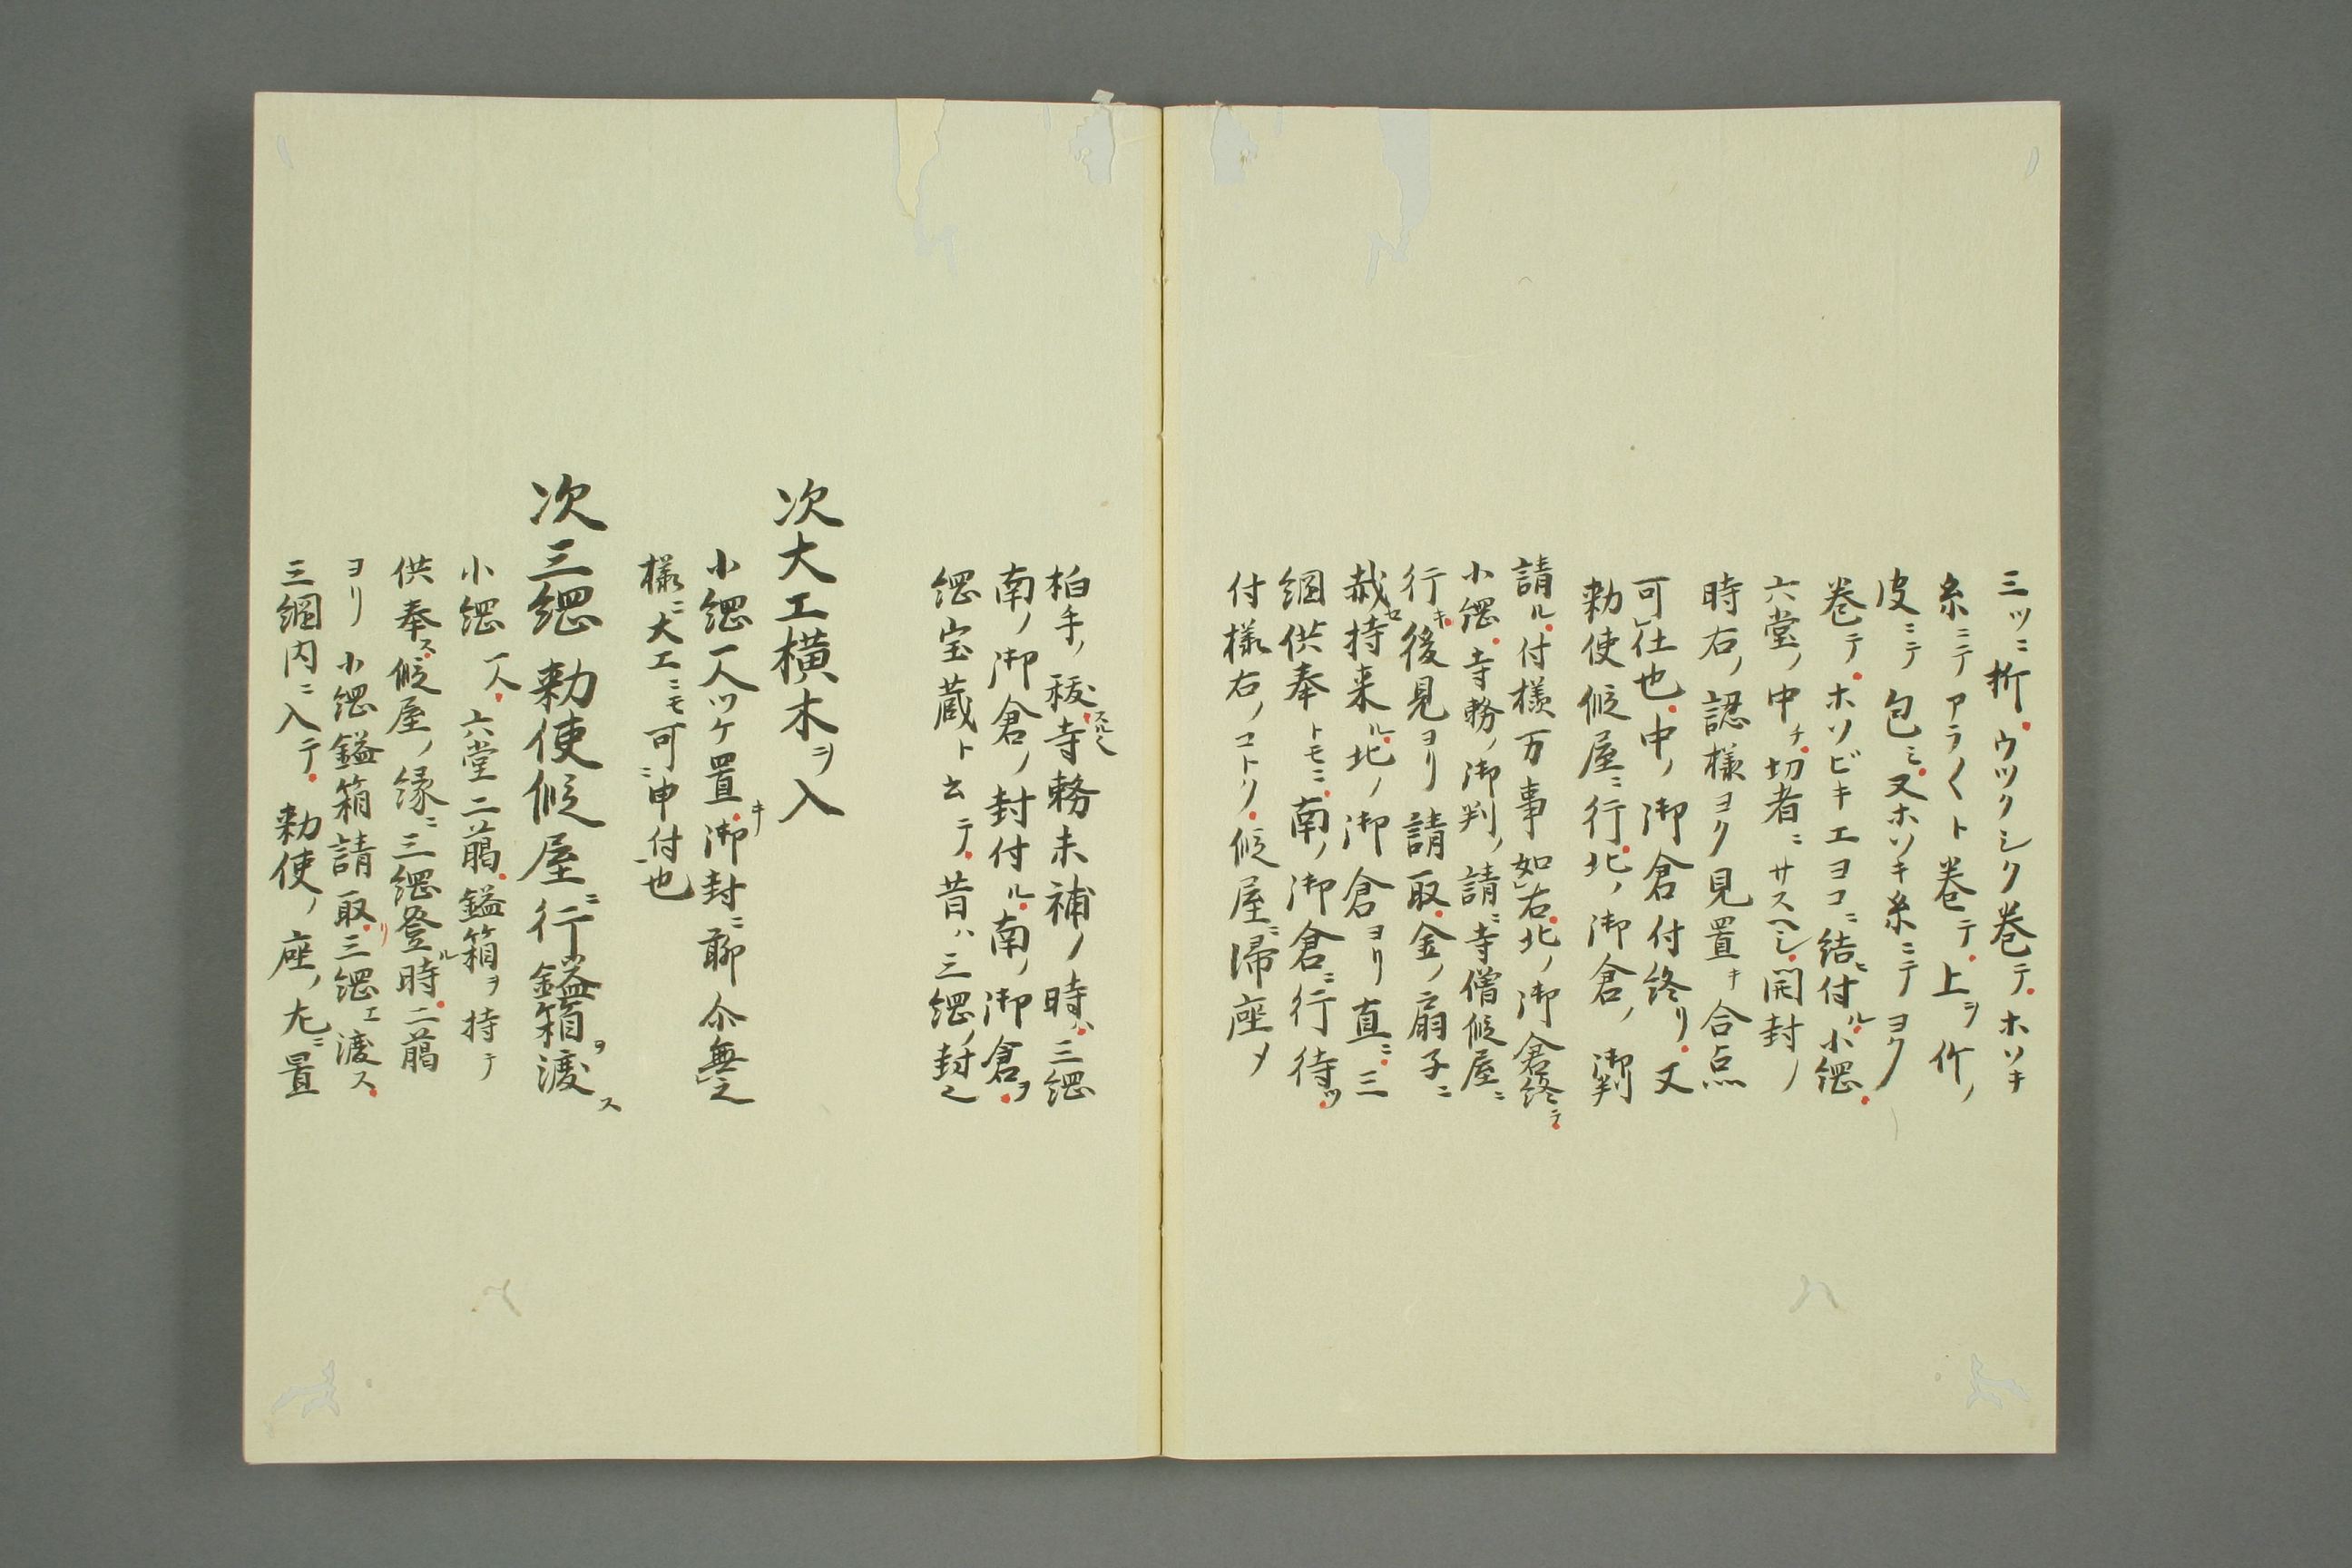 三ツニ折ウツクシク巻テホソキ
糸ニテアラ〱ト巻テ上ヲ竹ノ
皮ニテ包ミ又ホソキ糸ニテヨク
巻テホソビキエヨコニ結ヒ付ル小綱
六堂ノ中チ切者ニサスヘシ開封ノ
時右ノ認様ヨク見置キ合点
可仕也中ノ御倉付終リ又
勅使假屋ニ行北ノ御倉ノ御判
請ル付様万事如右北ノ御倉終テ
小綱寺務ノ御判ノ請ニ寺僧假屋ニ
行キ後見ヨリ請取金ノ扇子ニ
哉セ持来ル北ノ御倉ヨリ直ニ三
綱供奉トモニ南ノ御倉ニ行待ツ
付様右ノコトク假屋ニ帰座メ
柏手ノ秡スルヘシ寺務未補ノ時ハ三綱
南ノ御倉ノ封付ル南ノ御倉ヲ
綱宝蔵ト云テ昔ハ三綱ノ封之
次大工横木ヲ入
小綱一人ツケ置キ御封ニ聊尓無之
様ニ大工ニモ可ニ申付也
次三綱勅使假屋ニ行鎰箱ヲ渡ス
小綱一人六堂二﨟鎰箱ヲ持テ
供奉ス假屋ノ縁ニ三綱登ル時二﨟
ヨリ小綱鎰箱請取リ三綱エ渡ス
三綱内ニ入テ勅使ノ座ノ左ニ置